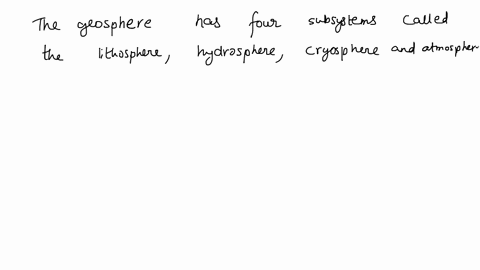 The geosphere has four subsystems called
the lithosphere, hydrosphere, cryosphere and atmospher